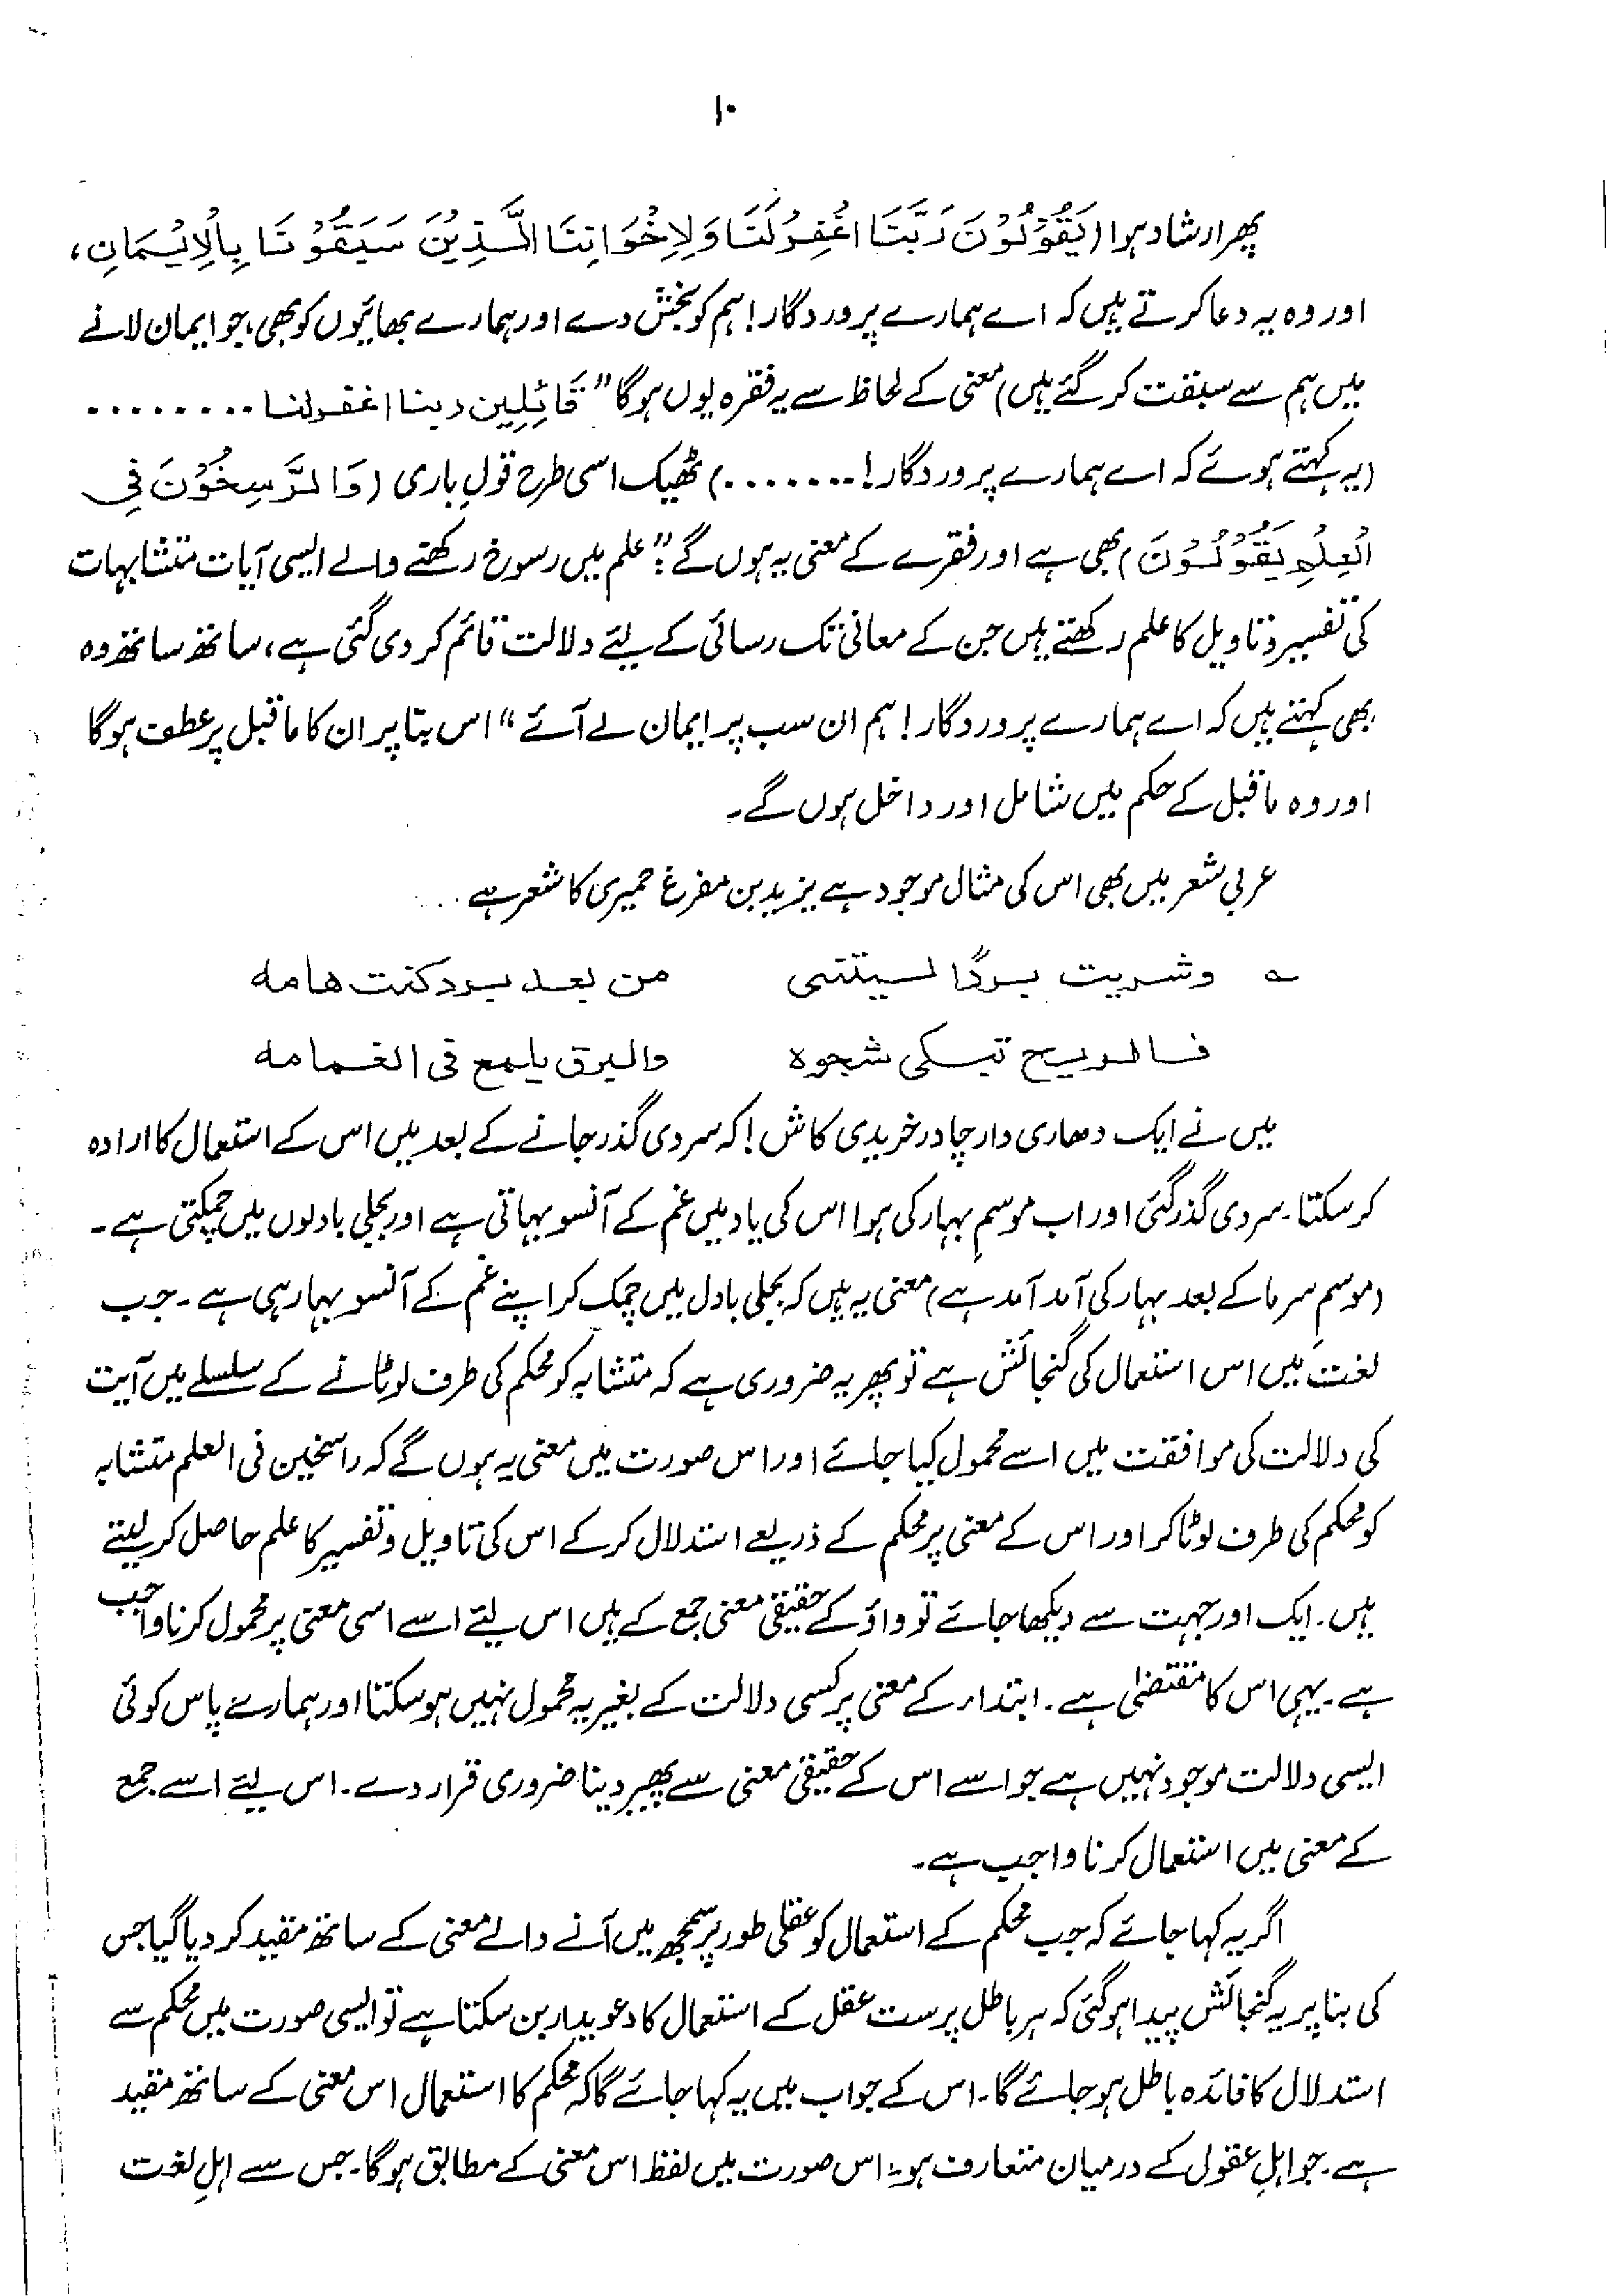 ۱۰
پھر ارشاد ہوا (یَقُوْلُوْنَ رَبَّنَا اغْفِرْ لَنَا وَلِاِخْوَانِنَا الَّذِیْنَ سَبَقُوْنَا بِالْاِیْمَانِ،
اور وہ یہ دعا کرتے ہیں کہ اے ہمارے پروردگار! ہم کو بخش دے اور ہمارے بھائیوں کو بھی، جو ایمان لانے
میں ہم سے سبقت کر گئے ہیں) معنی کے لحاظ سے یہ فقرہ یوں ہوگا" قَائِلِین ربنا اغفرلنا .........
(یہ کہتے ہوئے کہ اے ہمارے پروردگار! ........) ٹھیک اسی طرح قولِ باری (وَالرّٰسِخُوْنَ فِی
الْعِلْمِ یَقُوْلُوْنَ) بھی ہے اور فقرے کے معنی یہ ہوں گے :" علم میں رسوخ رکھنے والے ایسی آیات متشابہات
کی تفسیر و تاویل کا علم رکھتے ہیں جن کے معانی تک رسائی کے لیئے دلالت قائم کر دی گئی ہے، ساتھ ساتھ وہ
بھی کہتے ہیں کہ اے ہمارے پروردگار! ہم ان سب پر ایمان لے آئے" اس بنا پر ان کا ماقبل پر عطف ہوگا
اور وہ ماقبل کے حکم میں شامل اور داخل ہوں گے۔
عربی شعر میں بھی اس کی مثال موجود ہے یزید بن مفرغ حمیری کا شعر ہے
؎ وشریت بردًا لیتنی من بعد برد کنت ھامہ
فالریح تبکی شجوہ والبرق یلمع فی الغمامہ
میں نے ایک دھاری دار چادر خریدی کاش! کہ سردی گذر جانے کے بعد میں اس کے استعمال کا ارادہ
کر سکتا۔ سردی گذر گئی اور اب موسمِ بہار کی ہوا اس کی یاد میں غم کے آنسو بہاتی ہے اور بجلی بادلوں میں چمکتی ہے۔
(موسمِ سرما کے بعد بہار کی آمد آمد ہے) معنی یہ ہیں کہ بجلی بادل میں چمک کر اپنے غم کے آنسو بہا رہی ہے۔ جب
لغت میں اس استعمال کی گنجائش ہے تو پھر یہ ضروری ہے کہ متشابہ کو محکم کی طرف لوٹانے کے سلسلے میں آیت
کی دلالت کی موافقت میں اسے محمول کیا جائے اور اس صورت میں معنی یہ ہوں گے کہ راسخین فی العلم متشابہ
کو محکم کی طرف لوٹا کر اور اس کے معنی پر محکم کے ذریعے استدلال کر کے اس کی تاویل و تفسیر کا علم حاصل کر لیتے
ہیں۔ ایک اور جہت سے دیکھا جائے تو واؤ کے حقیقی معنی جمع کے ہیں اس لیئے اسے اسی معنی پر محمول کرنا واجب
ہے۔ یہی اس کا مقتضیٰ ہے۔ ابتداء کے معنی پر کسی دلالت کے بغیر یہ محمول نہیں ہو سکتا اور ہمارے پاس کوئی
ایسی دلالت موجود نہیں ہے جو اسے اس کے حقیقی معنی سے پھیر دینا ضروری قرار دے۔ اس لیئے اسے جمع
کے معنی میں استعمال کرنا واجب ہے۔
اگر یہ کہا جائے کہ جب محکم کے استعمال کو عقلی طور پر سمجھ میں آنے والے معنی کے ساتھ مقید کر دیا گیا جس
کی بنا پر یہ گنجائش پیدا ہو گئی کہ ہر باطل پرست عقل کے استعمال کا دعویدار بن سکتا ہے تو ایسی صورت میں محکم سے
استدلال کا فائدہ باطل ہو جائے گا۔ اس کے جواب میں یہ کہا جائے گا کہ محکم کا استعمال اس معنی کے ساتھ مقید
ہے۔ جو اہلِ عقول کے درمیان متعارف ہو۔ اس صورت میں لفظ اس معنی کے مطابق ہوگا۔ جس سے اہلِ لغت